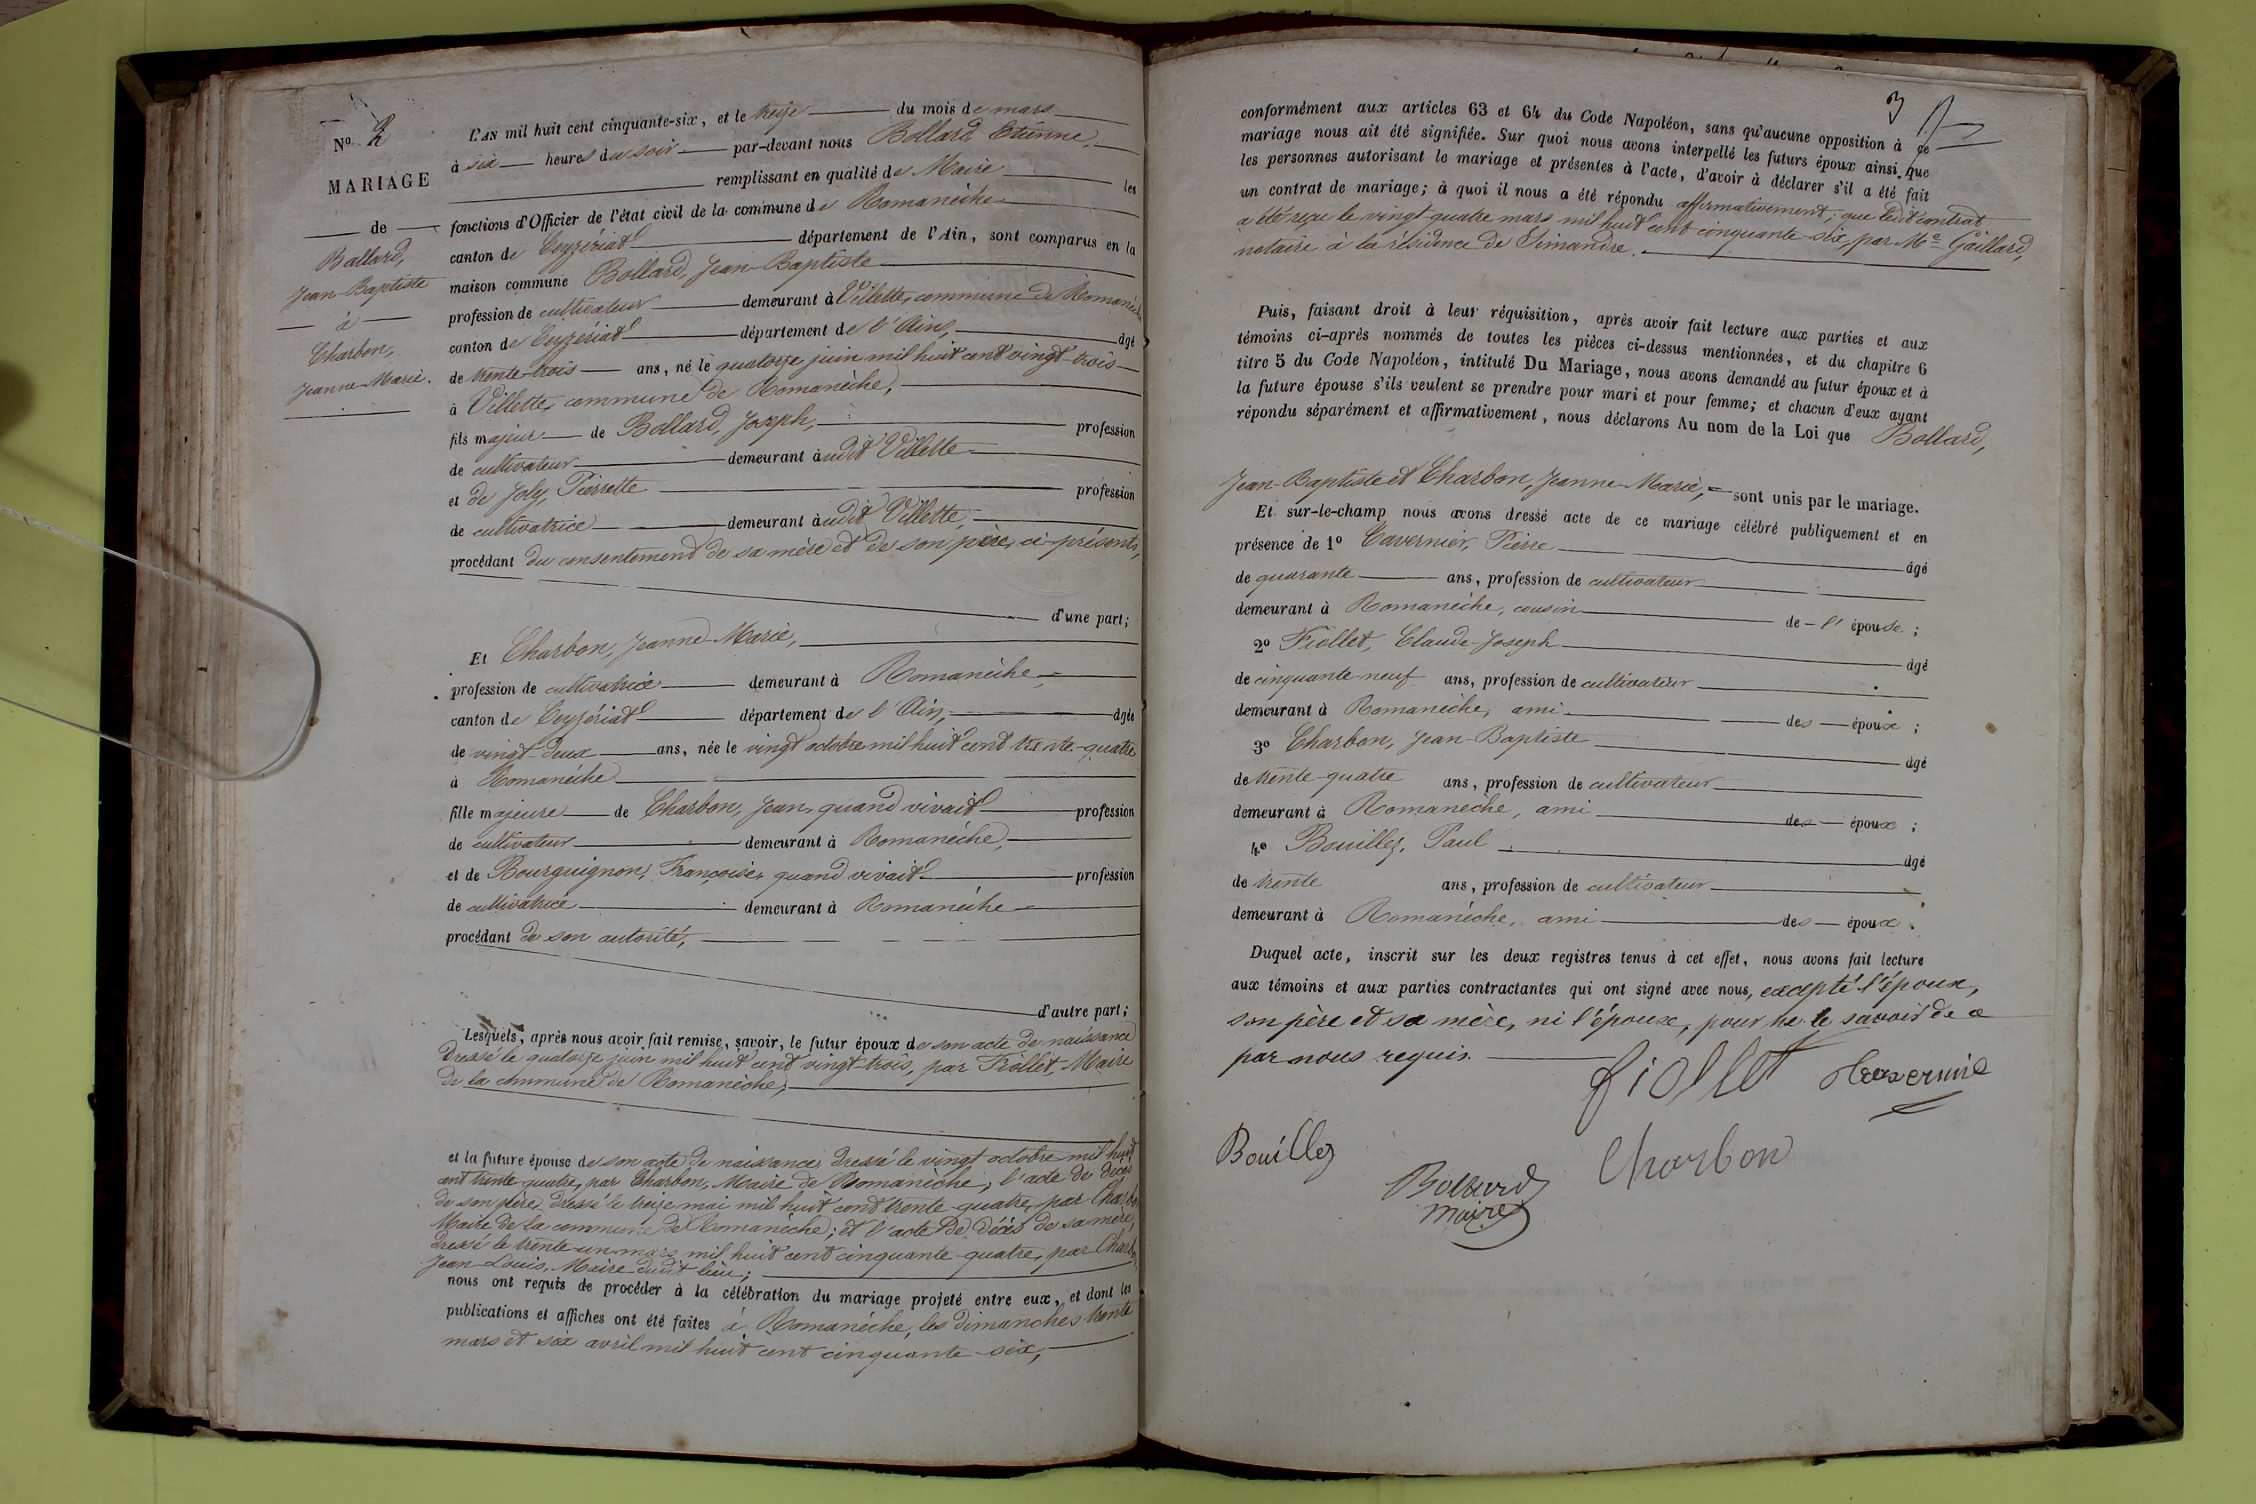 N° 2
MARIAGE
de
Bollard,
Jean-Baptiste
à
Charbon,
Jeanne-Marie.
L'AN mil huit cent cinquante-six, et le treize du mois de mars
à six heures du soir par-devant nous Bollard, Etienne,
remplissant en qualité de Maire les
fonctions d'Officier de l'état civil de la commune de Romanèche
canton de Ceyzériat département de l'Ain, sont comparus en la
maison commune Bollard, Jean-Baptiste
profession de cultivateur demeurant à Villette, commune de Romanèche
canton de Ceyzériat département de l'Ain, âgé
de trente-trois ans, né le quatorze juin mil huit cent vingt-trois
à Villette, commune de Romanèche,
fils majeur de Bollard, Joseph, profession
de cultivateur demeurant audit Villette
et de Joly, Pierrette profession
de cultivatrice demeurant audit Villette,
procédant du consentement de sa mère et de son père, ci-présents,
d'une part;
Et Charbon, Jeanne-Marie,
profession de cultivatrice demeurant à Romanèche,
canton de Ceyzériat département de l'Ain, âgée
de vingt-deux ans, née le vingt octobre mil huit cent trente-quatre
à Romanèche
fille majeure de Charbon, Jean, quand vivait profession
de cultivateur demeurant à Romanèche,
et de Bourguignon, Françoise, quand vivait profession
de cultivatrice demeurant à Romanèche
procédant de son autorité,
d'autre part;
Lesquels, après nous avoir fait remise, savoir, le futur époux de son acte de naissance
dressé le quatorze juin mil huit cent vingt-trois, par Fiollet, Maire
de la commune de Romanèche,
et la future épouse de son acte de naissance, dressé le vingt octobre mil huit
cent trente-quatre, par Charbon, Maire de Romanèche, l'acte de décès
de son père, dressé le treize mai mil huit cent trente-quatre, par Charbon
Maire de la commune de Romanèche; et l'acte de décès de sa mère,
dressé le trente-un mars mil huit cent cinquante-quatre, par Charbon
Jean-Louis, Maire dudit lieu;
nous ont requis de procéder à la célébration du mariage projeté entre eux, et dont les
publications et affiches ont été faites à Romanèche, les dimanches trente
mars et six avril mil huit cent cinquante-six,
3
conformément aux articles 63 et 64 du Code Napoléon, sans qu'aucune opposition à ce
mariage nous ait été signifiée. Sur quoi nous avons interpellé les futurs époux ainsi que
les personnes autorisant le mariage et présentes à l'acte, d'avoir à déclarer s'il a été fait
un contrat de mariage; à quoi il nous a été répondu affirmativement; que ledit contrat
a été reçu le vingt-quatre mars mil huit cent cinquante-six, par Me Gaillard,
notaire à la résidence de Simandre.
Puis, faisant droit à leur réquisition, après avoir fait lecture aux parties et aux
témoins ci-après nommés de toutes les pièces ci-dessus mentionnées, et du chapitre 6
titre 5 du Code Napoléon, intitulé Du Mariage, nous avons demandé au futur époux et à
la future épouse s'ils veulent se prendre pour mari et pour femme; et chacun d'eux ayant
répondu séparément et affirmativement, nous déclarons Au nom de la Loi que Bollard,
Jean-Baptiste et Charbon, Jeanne-Marie, sont unis par le mariage.
Et sur-le-champ nous avons dressé acte de ce mariage célébré publiquement et en
présence de 1° Tavernier, Pierre âgé
de quarante ans, profession de cultivateur
demeurant à Romanèche, cousin de l'épouse;
2° Fiollet, Claude-Joseph âgé
de cinquante-neuf ans, profession de cultivateur
demeurant à Romanèche, ami des époux;
3° Charbon, Jean-Baptiste âgé
de trente-quatre ans, profession de cultivateur
demeurant à Romanèche, ami des époux;
4° Bouillez, Paul âgé
de trente ans, profession de cultivateur
demeurant à Romanèche, ami des époux.
Duquel acte, inscrit sur les deux registres tenus à cet effet, nous avons fait lecture
aux témoins et aux parties contractantes qui ont signé avec nous, excepté l'époux,
son père et sa mère, ni l'épouse, pour ne le savoir de ce
par nous requis.
fiollet
Bouillez
Charbon
Bollard
Maire